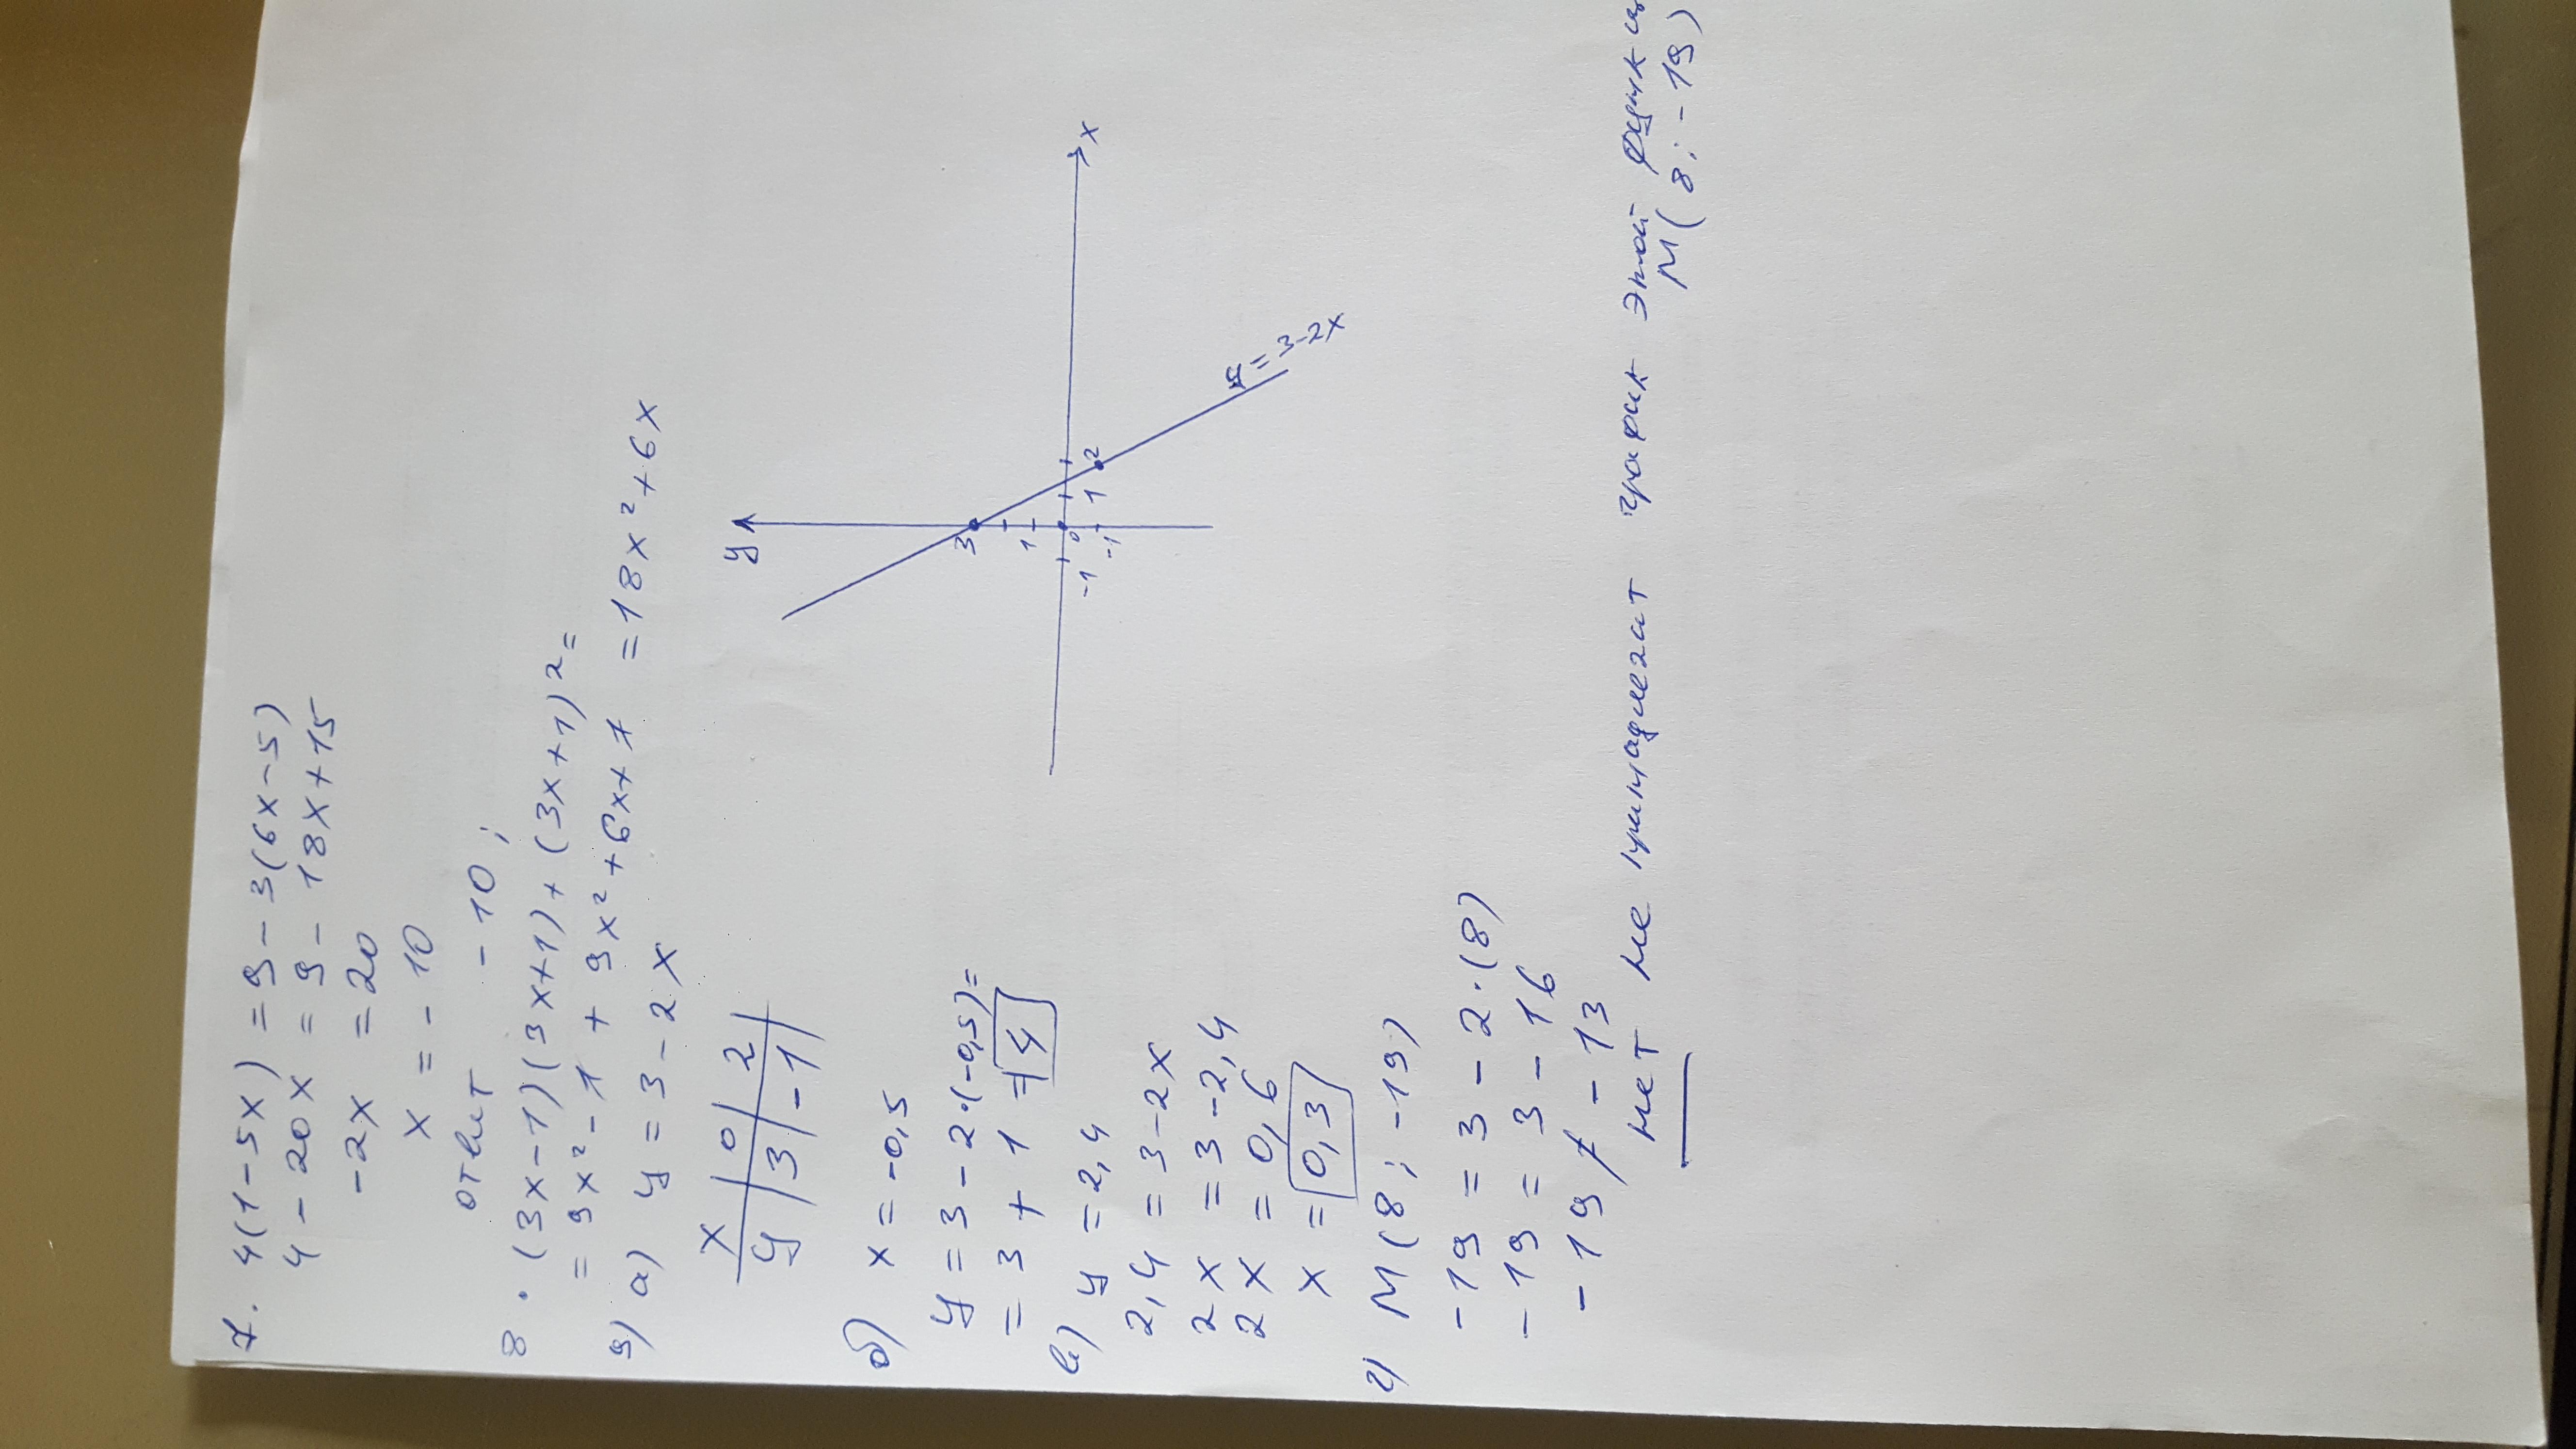 7. 4(1-5x) = 9 - 3(6x-5)
4 - 20x = 9 - 18x + 15
-2x = 20
x = -10
ответ -10;
8. (3x-1)(3x+1) + (3x+1)² =
= 9x² - 1 + 9x² + 6x + 1 = 18x² + 6x
9) а) y = 3 - 2x
x | 0 | 2
y | 3 | -1
y
3
1
0
-1
-1
1
2
x
y = 3-2x
б) x = -0,5
y = 3 - 2·(-0,5) =
= 3 + 1 = 4
в) y = 2,4
2,4 = 3 - 2x
2x = 3 - 2,4
2x = 0,6
x = 0,3
г) M(8; -19)
-19 = 3 - 2·(8)
-19 = 3 - 16
-19 ≠ -13
нет не принадлежат график этой функц
M(8; -19)